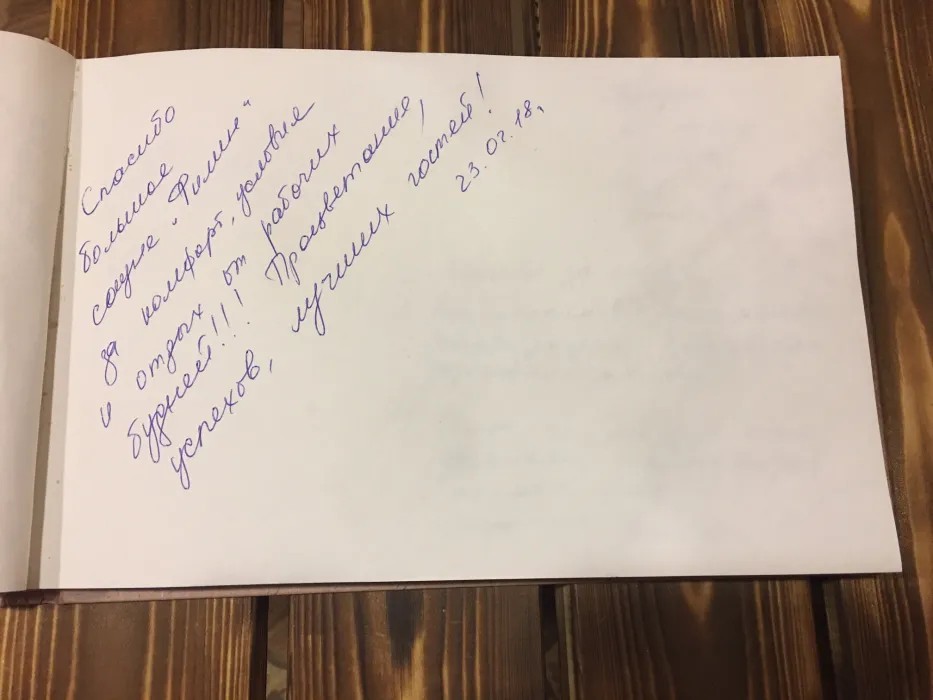 Спасибо
большое
сауне "Филин"
за комфорт, условия
и отдых от рабочих
будней!!! Процветания,
успехов, лучших гостей!
23.02.18,